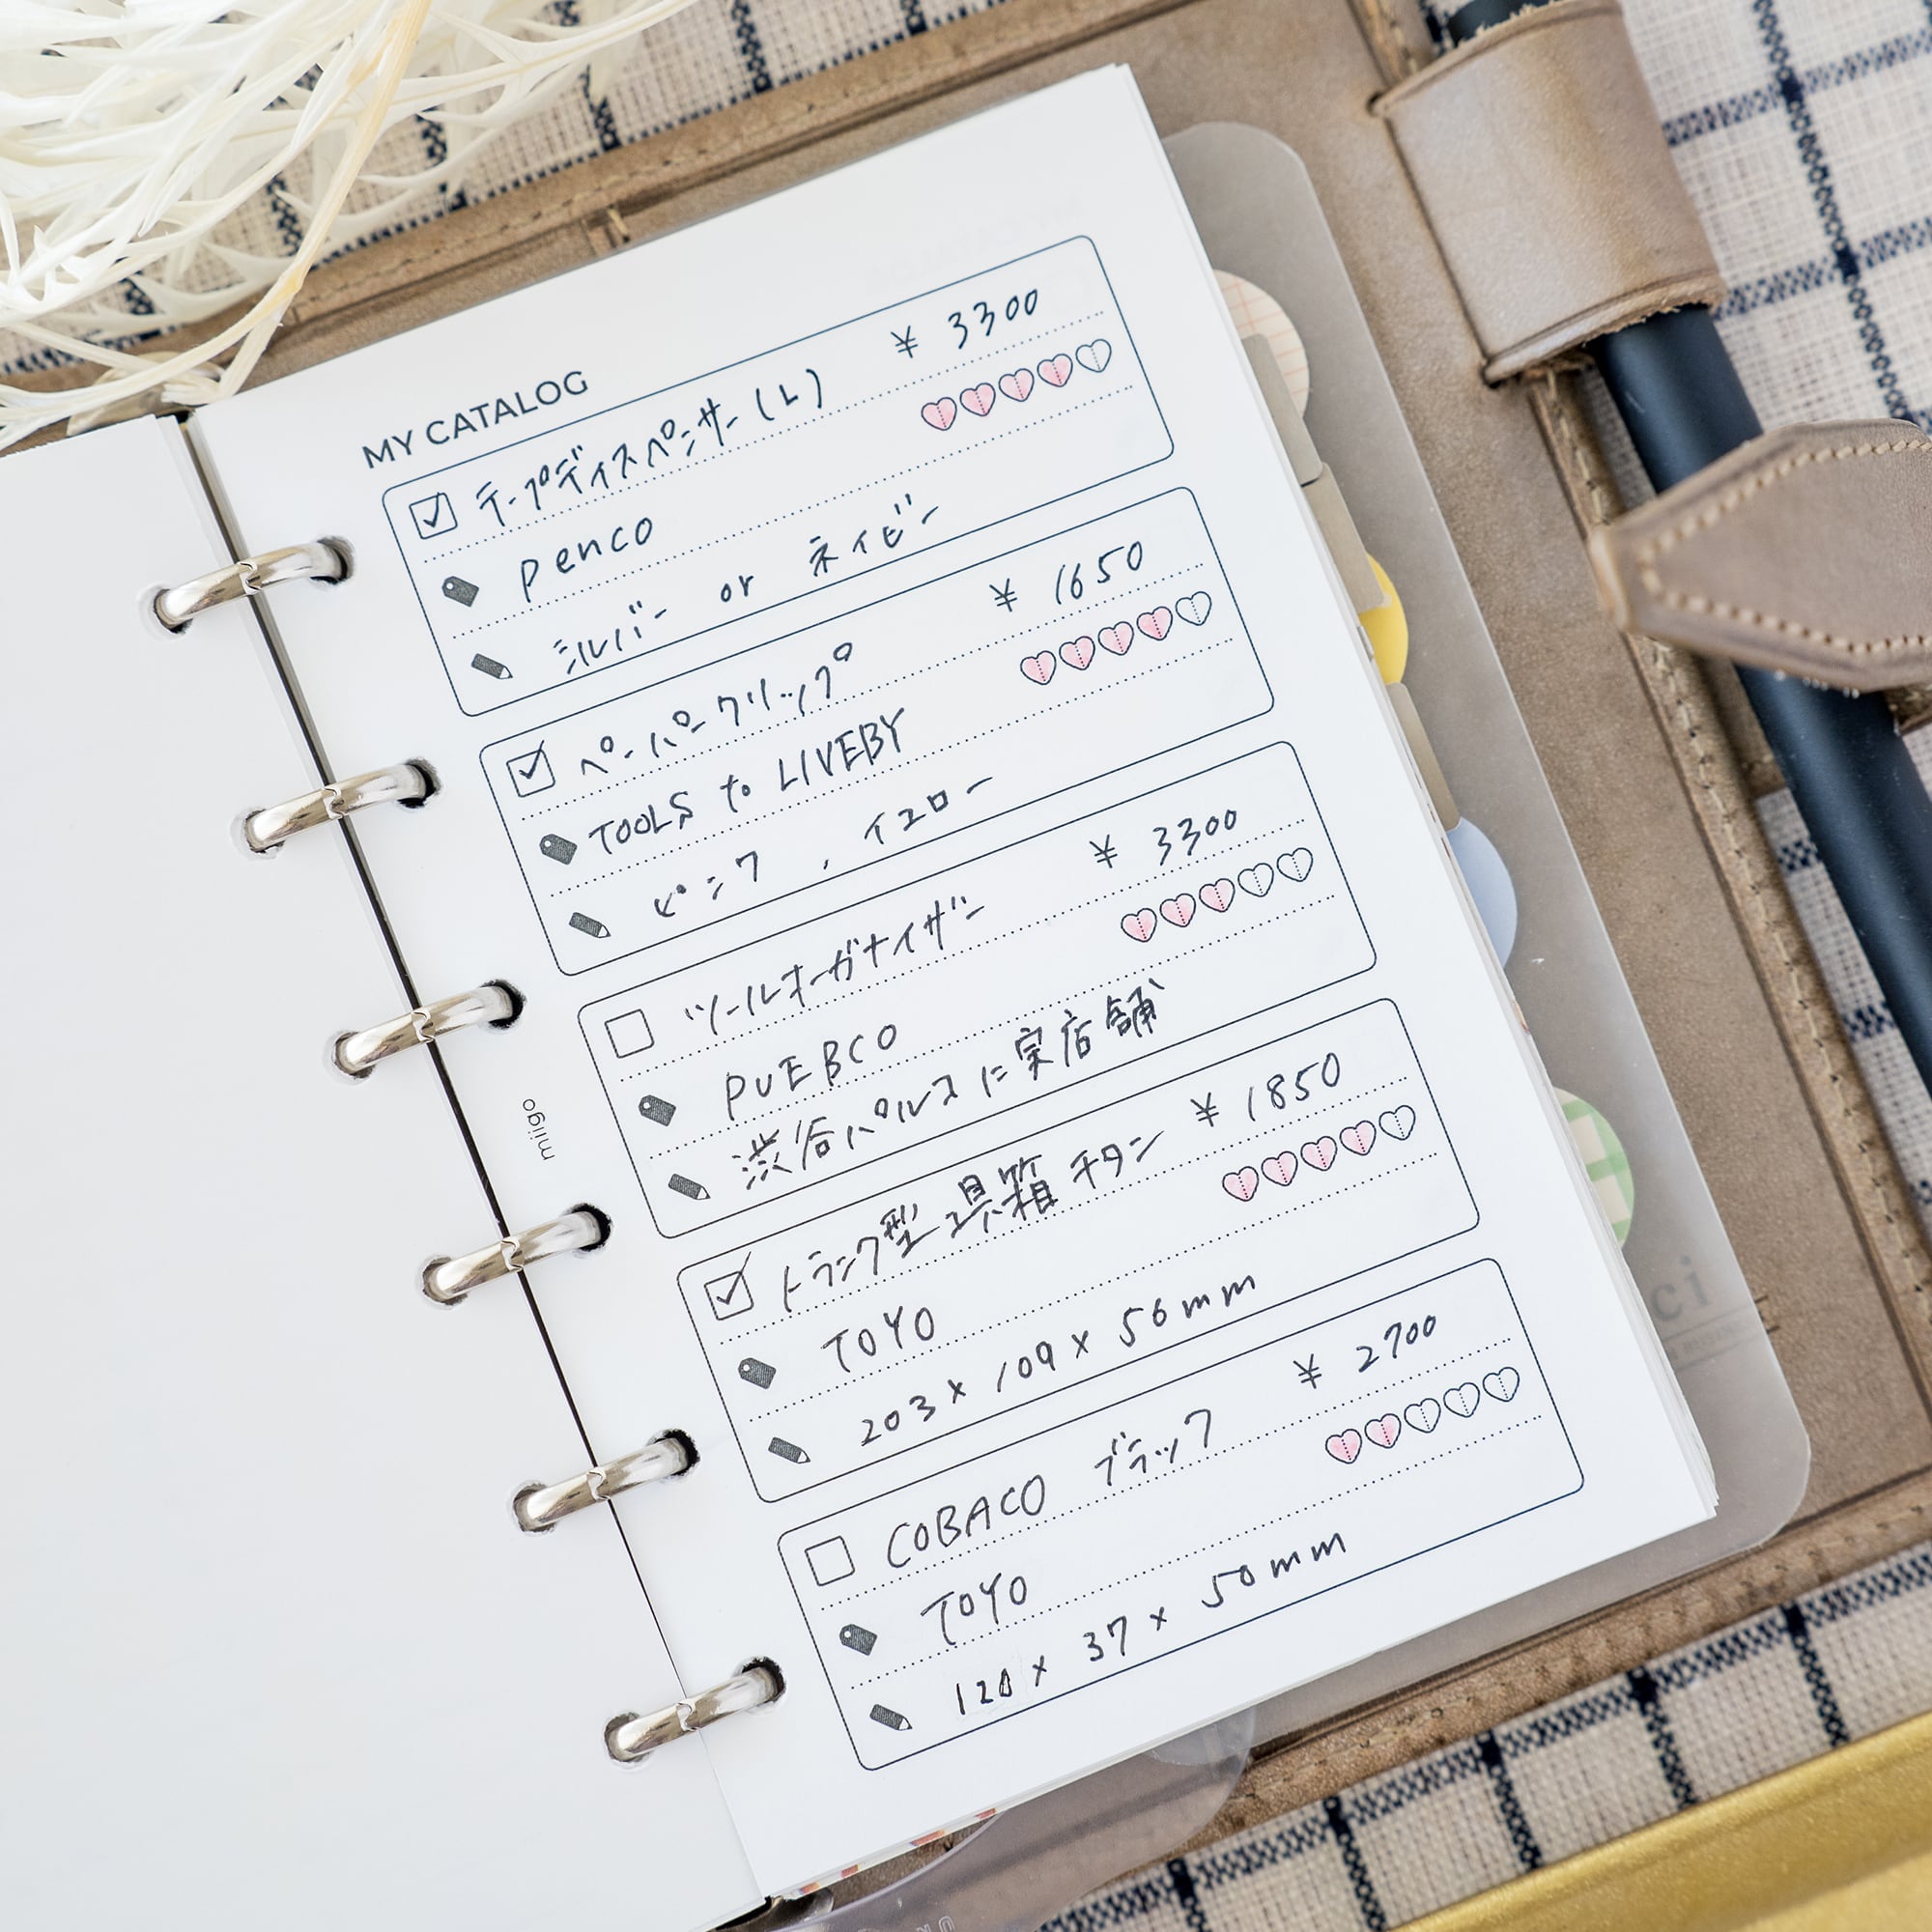 MY CATALOG
テープディスペンサー(L) ¥ 3300
penco
シルバー or ネイビー
ペーパークリップ ¥ 1650
TOOLS to LIVEBY
ピンク , イエロー
ツールオーガナイザー ¥ 3300
PUEBCO
渋谷パルコに実店舗
トランク型工具箱 チタン ¥ 1850
TOYO
203 x 109 x 56mm
COBACO ブラック ¥ 2700
TOYO
120 x 37 x 50mm
miigo
ci